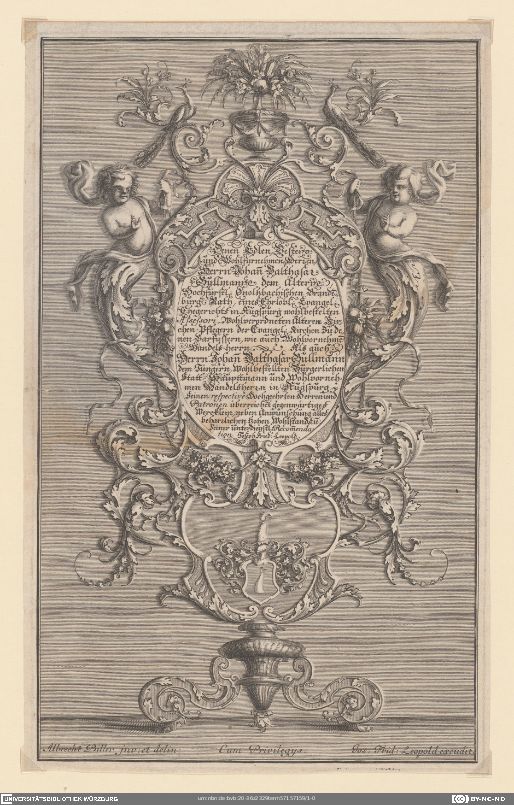 Denen Edlen Vesten
und Wohlfürnehmen Herren
Herrn Johañ Balthasar
Gullmann, demÄltern,
Hochfürstl. Onoltzbachischen Brand
burg. Rath, eines Ehrlöbl. Evangel.
Ehegerichts in Augspurg wohlbestelten
Assessorn, Wohlverordneten Älteren
chen Pflegern der Evangel. Kirchen zu de
nen Barfüssern, wie auch Wohlvornehmē
Handels herrn. Als auch
Herrn Johañ Balthasar Gullmann
dem Jüngern, Wohlbestellten Bürgerlichen
Statt Hauptmann und Wohlvorneh
men Handelsherrn in Augspurg
Seinen respective Hochgeehrten Herren und
Patronen überreichet gegenwärtiges
Wercklein, neben Anwünschung alles
beharrlichen hohen Wohlstandes
seiner unterdienstl. Recommenda
tion. Joseph Frid. Leopold.
Albrecht Biller, inv: et delin:
Cum Privilegys.
Jos: Frid: Leopold excudit.
UNIVERSITÄTSBIBLIOTHEK WÜRZBURG
CC BY-NC-ND